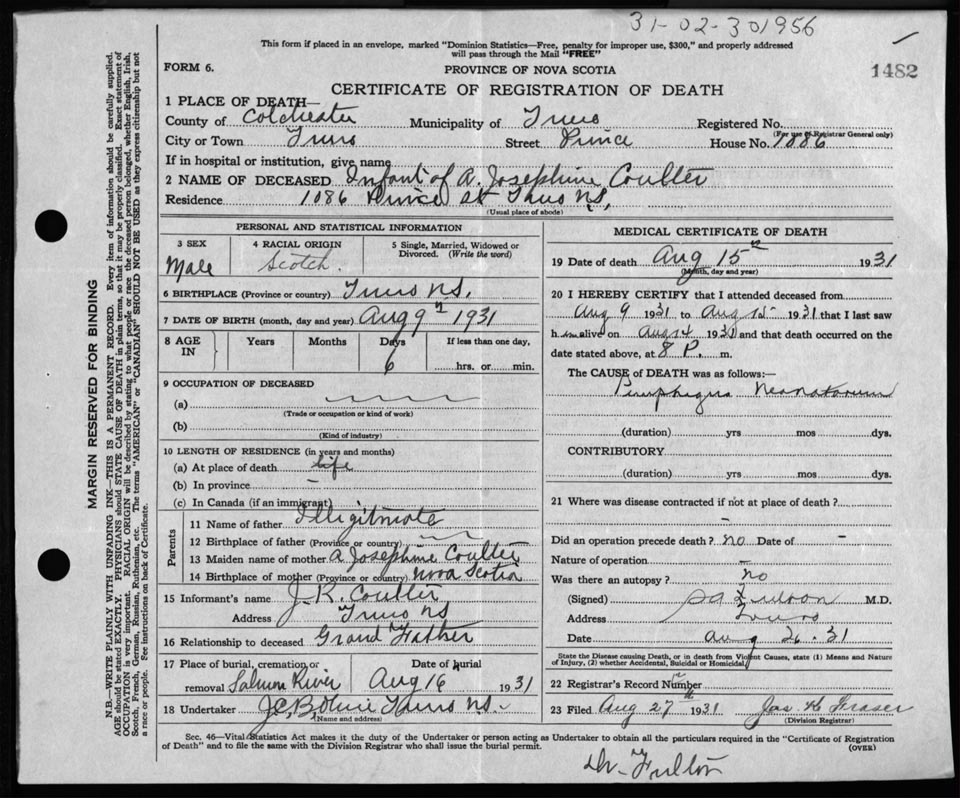 31-02-301956
This form if placed in an envelope, marked "Dominion Statistics—Free, penalty for improper use, $300," and properly addressed
will pass through the Mail "FREE"
FORM 6.
PROVINCE OF NOVA SCOTIA
1482
CERTIFICATE OF REGISTRATION OF DEATH
1 PLACE OF DEATH—
County of Colchester Municipality of Truro Registered No.
(For use of Registrar General only)
City or Town Truro Street Prince House No. 1086
If in hospital or institution, give name
2 NAME OF DECEASED Infant of A. Josephine Coulter
Residence 1086 Prince St Truro N.S.
(Usual place of abode)
PERSONAL AND STATISTICAL INFORMATION
3 SEX Male
4 RACIAL ORIGIN Scotch.
5 Single, Married, Widowed or Divorced. (Write the word)
6 BIRTHPLACE (Province or country) Truro N.S.
7 DATE OF BIRTH (month, day and year) Aug 9th 1931
8 AGE IN Years Months Days 6 If less than one day, hrs. or min.
9 OCCUPATION OF DECEASED
(a)
(Trade or occupation or kind of work)
(b)
(Kind of industry)
10 LENGTH OF RESIDENCE (in years and months)
(a) At place of death life
(b) In province –
(c) In Canada (if an immigrant)
Parents
11 Name of father Illegitmate
12 Birthplace of father (Province or country)
13 Maiden name of mother A Josephine Coulter
14 Birthplace of mother (Province or country) Nova Scotia
15 Informant's name J. R. Coulter
Address Truro NS
16 Relationship to deceased Grand Father
17 Place of burial, cremation or removal Salmon River Date of burial Aug 16 1931
18 Undertaker Truro N.S.
(Name and address)
MEDICAL CERTIFICATE OF DEATH
19 Date of death Aug 15th 1931
(Month, day and year)
20 I HEREBY CERTIFY that I attended deceased from
Aug 9 1931 to Aug 15 1931 that I last saw
him alive on Aug 14 1931 and that death occurred on the
date stated above, at 8 P. m.
The CAUSE of DEATH was as follows:—
Pemphigus Neonatorum
(duration) yrs mos dys.
CONTRIBUTORY
(duration) yrs mos dys.
21 Where was disease contracted if not at place of death?
–
Did an operation precede death? no Date of –
Nature of operation –
Was there an autopsy? no
(Signed) M.D.
Address Truro
Date Aug 26.31
State the Disease causing Death, or in death from Violent Causes, state (1) Means and Nature
of Injury, (2) whether Accidental, Suicidal or Homicidal
22 Registrar's Record Number
23 Filed Aug 27th 1931 Jas. H Fraser
(Division Registrar)
Sec. 46—Vital Statistics Act makes it the duty of the Undertaker or person acting as Undertaker to obtain all the particulars required in the "Certificate of Registration
of Death" and to file the same with the Division Registrar who shall issue the burial permit.
(OVER)
Dr. Fulton
MARGIN RESERVED FOR BINDING
N.B.—WRITE PLAINLY WITH UNFADING INK—THIS IS A PERMANENT RECORD. Every item of information should be carefully supplied.
AGE should be stated EXACTLY. PHYSICIANS should STATE CAUSE OF DEATH in plain terms, so that it may be properly classified. Exact statement of
OCCUPATION is very important. RACIAL ORIGIN will be described by stating to what people or race the deceased person belonged, whether English, Irish,
Scotch, French, German, Russian, Ruthenian, etc. The terms "AMERICAN" or "CANADIAN" SHOULD NOT BE USED as they express citizenship but not
a race or people. See instructions on back of Certificate.